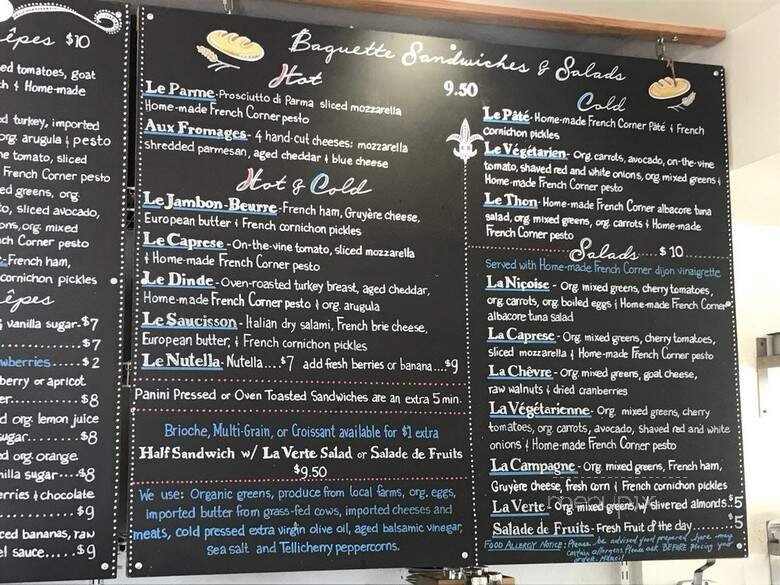 êpes $10
ed tomatoes, goat
ch & Home-made
d turkey, imported
org. arugula & pesto
ne tomato, sliced
French Corner pesto
ed greens, org.
to, sliced avocado,
ons, org. mixed
nch Corner pesto
-French ham,
cornichon pickles
êpes
vanilla sugar-$7
$7
wberries....$2
berry or apricot
er........$8
d org. lemon juice
sugar.......$8
d org. orange
nilla sugar....$8
erries & chocolate
$9
iced bananas, raw
el sauce.....$9
Baguette Sandwiches & Salads
Hot
9.50
Le Parme-Prosciutto di Parma sliced mozzarella
Home-made French Corner pesto
Aux Fromages-4 hand-cut cheeses: mozzarella
shredded parmesan, aged cheddar & blue cheese
Hot & Cold
Le Jambon-Beurre-French ham, Gruyère cheese,
European butter & French cornichon pickles
Le Caprese-On-the-vine tomato, sliced mozzarella
& Home-made French Corner pesto
Le Dinde-Oven-roasted turkey breast, aged cheddar,
Home-made French Corner pesto & org. arugula
Le Saucisson-Italian dry salami, French brie cheese,
European butter, & French cornichon pickles
Le Nutella-Nutella....$7 add fresh berries or banana....$9
Panini Pressed or Oven Toasted Sandwiches are an extra 5 min.
Brioche, Multi-Grain, or Croissant available for $1 extra
Half Sandwich w/ La Verte Salad or Salade de Fruits
$9.50
We use: Organic greens, produce from local farms, org. eggs,
imported butter from grass-fed cows, imported cheeses and
meats, cold pressed extra virgin olive oil, aged balsamic vinegar,
sea salt and Tellicherry peppercorns.
Cold
Le Pâté-Home-made French Corner Pâté & French
cornichon pickles
Le Végétarien-Org. carrots, avocado, on-the-vine
tomato, shaved red and white onions, org. mixed greens &
Home-made French Corner pesto
Le Thon-Home-made French Corner albacore tuna
salad, org. mixed greens, org. carrots & Home-made
French Corner pesto
Salads $10
Served with Home-made French Corner dijon vinaigrette
La Niçoise-Org. mixed greens, cherry tomatoes,
org. carrots, org. boiled eggs & Home-made French Corner
albacore tuna salad
La Caprese-Org. mixed greens, cherry tomatoes,
sliced mozzarella & Home-made French Corner pesto
La Chêvre-Org. mixed greens, goat cheese,
raw walnuts & dried cranberries
La Végétarienne-Org. mixed greens, cherry
tomatoes, org. carrots, avocado, shaved red and white
onions & Home-made French Corner pesto
La Campagne-Org. mixed greens, French ham,
Gruyère cheese, fresh corn & French cornichon pickles
La Verte-Org. mixed greens, w/ slivered almonds..$5
Salade de Fruits-Fresh Fruit of the day........$5
FOOD ALLERGY NOTICE: Please be advised food prepared here may
contain allergens. Please ask BEFORE placing your
order. Merci!
menupix